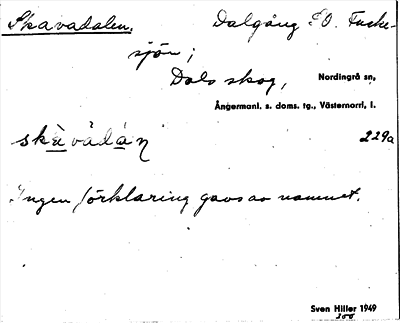 Skavadalen. Dalgång S.O. Fuske-
sjön;
Dals skog, Nordingrå sn,
Ångermanl. s. doms. tg., Västernorrl. l.
skàvådáṇ 229a
Ingen förklaring gavs av namnet.
Sven Hiller 1949